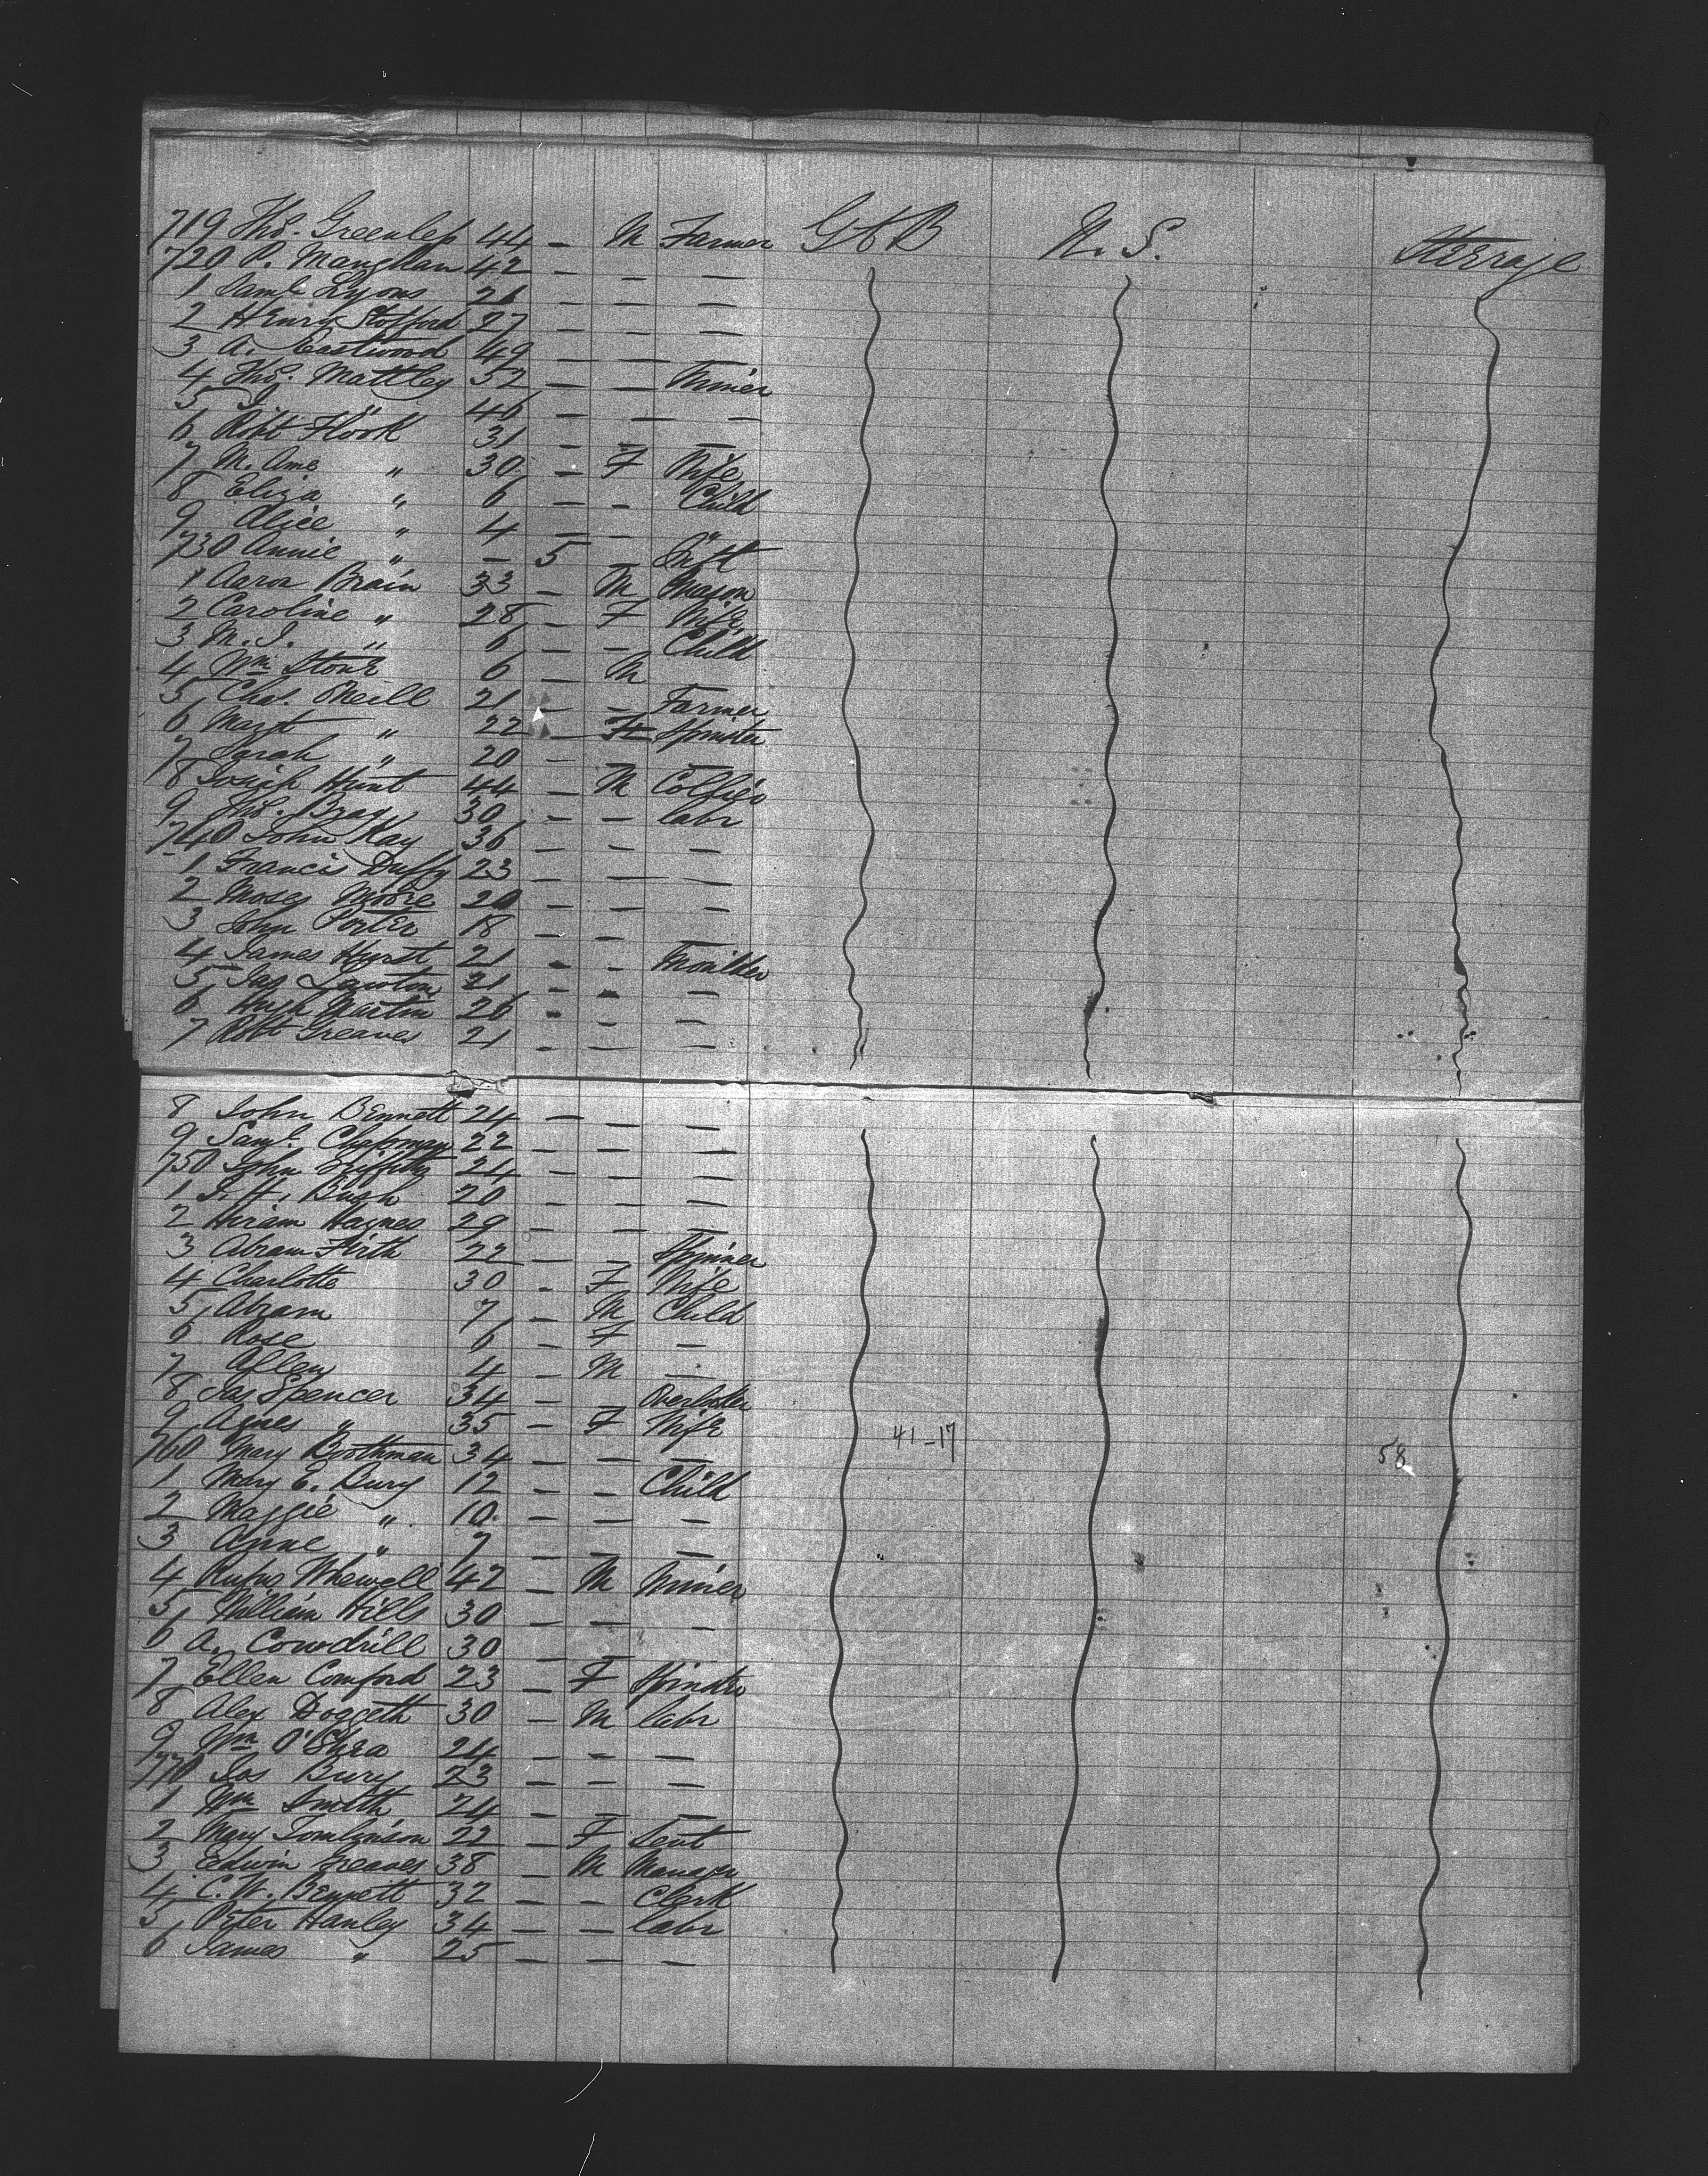 719 Thos. Greenlep 44 — M Farmer Gt B U. S. Steerage
720 P. Manghan 42 — — —
1 Saml Lyons 21 — — —
2 Henry Stofford 27 — — —
3 A. Eastwood 49 — — —
4 Thos. Mattley 52 — — Miner
5 J. " 46 — — —
6 Robt Hook 31 — — —
7 M. Ame " 30 — F Wife
8 Eliza " 6 — — Child
9 Alice " 4 — — "
730 Annie " — 5 — Inft
1 Aaron Brain 33 — M Mason
2 Caroline " 28 — F Wife
3 M. J. " 6 — — Child
4 Wm Stone 6 — M
5 Chas. Oneill 21 — — Farmer
6 Margt " 22 — F Spinster
7 Sarah " 20 — — —
8 Josiah Hunt 44 — M Collier
9 Thos. Bray 30 — — labr
740 John Kay 36 — — —
1 Francis Duffy 23 — — —
2 Moses Moore 20 — — —
3 John Porter 18 — — —
4 James Hurst 21 — — Moulder
5 Jas Lawton 21 — — —
6 Hugh Martin 26 — — —
7 Robt Greaves 21 — — —
8 John Bennett 24 — — —
9 Saml. Chapman 22 — — —
750 John Griffiths 24 — — —
1 J. H. Bush 20 — — —
2 Hiram Haynes 29 — — —
3 Abram Firth 22 — — Spinner
4 Charlotte 30 — F Wife
5 Abram 7 — M Child
6 Rose 6 — F —
7 Allen 4 — M —
8 Jas Spencer 34 — — Overlooker
9 Agnes " 35 — F Wife 41-17
760 Mary Boothman 34 — — — 58
1 Mary E. Bury 12 — — Child
2 Maggie " 10 — — —
3 Anne " 7 — — —
4 Rufus Whewell 42 — M Miner
5 William Hills 30 — — —
6 A. Cowdrill 30 — — —
7 Ellen Comford 23 — F Spinster
8 Alex Doggeth 30 — M labr
9 Wm O'Shea 24 — — —
770 Jos Bury 23 — — —
1 Wm Smith 24 — — —
2 Mary Tomlinson 22 — F Sevt
3 Edwin Greaves 38 — M Manager
4 C. W. Bennett 32 — — Clerk
5 Peter Hanley 34 — — labr
6 James " 25 — — —